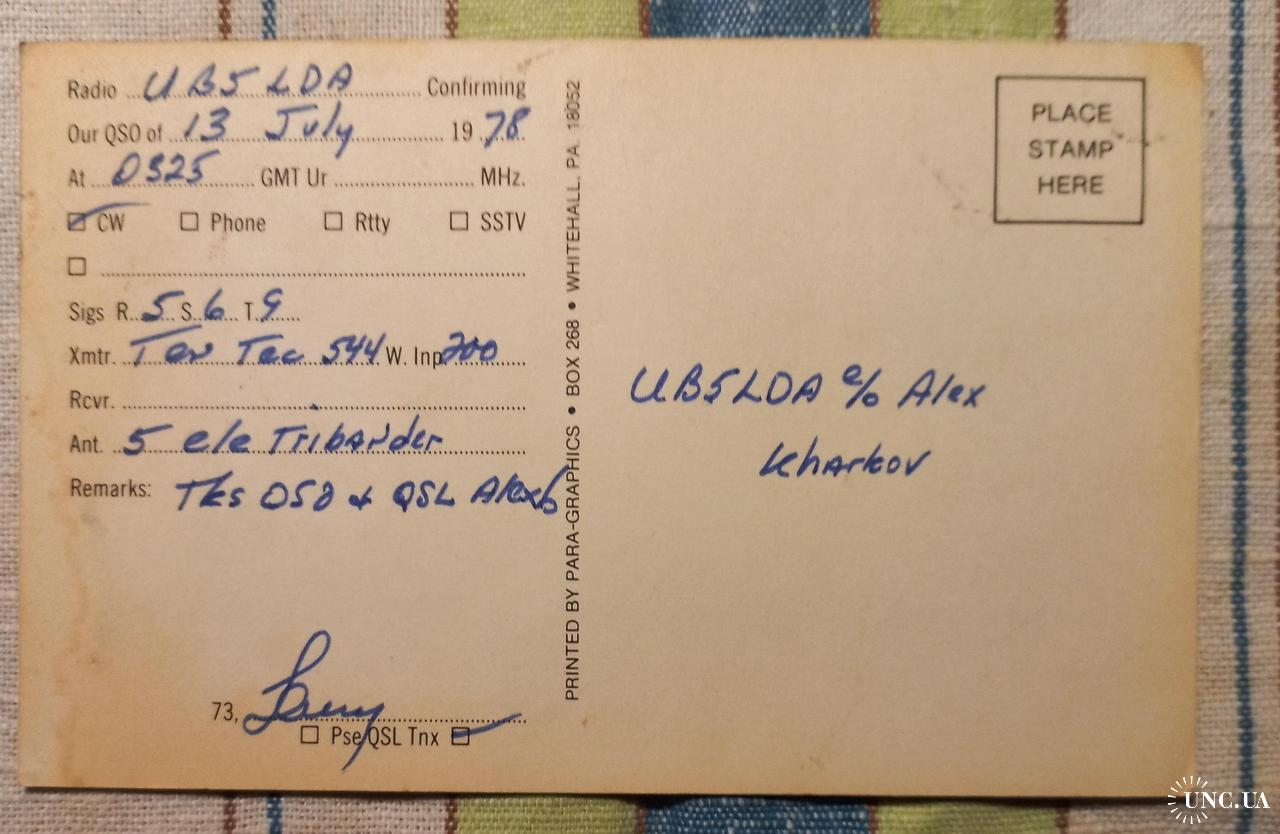 Radio UB5LDA Confirming
Our QSO of 13 July 1978
At 0325 GMT Ur MHz.
CW Phone Rtty SSTV
Sigs R. 5 S. 6 T. 9
Xmtr. Ten Tec 544 W. Inp 200
Rcvr.
Ant. 5 ele Tribander
Remarks: Tks QSO + QSL
73, Larry
Pse QSL Tnx
PRINTED BY PARA-GRAPHICS • BOX 268 • WHITEHALL, PA. 18052
PLACE
STAMP
HERE
UB5LDA c/o Alex
Kharkov
UNC.UA